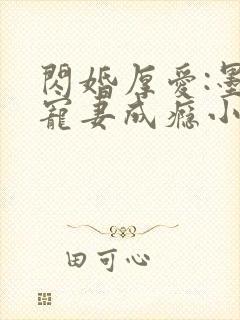 閃婚厚愛:墨
寵妻成瘾小
田可心